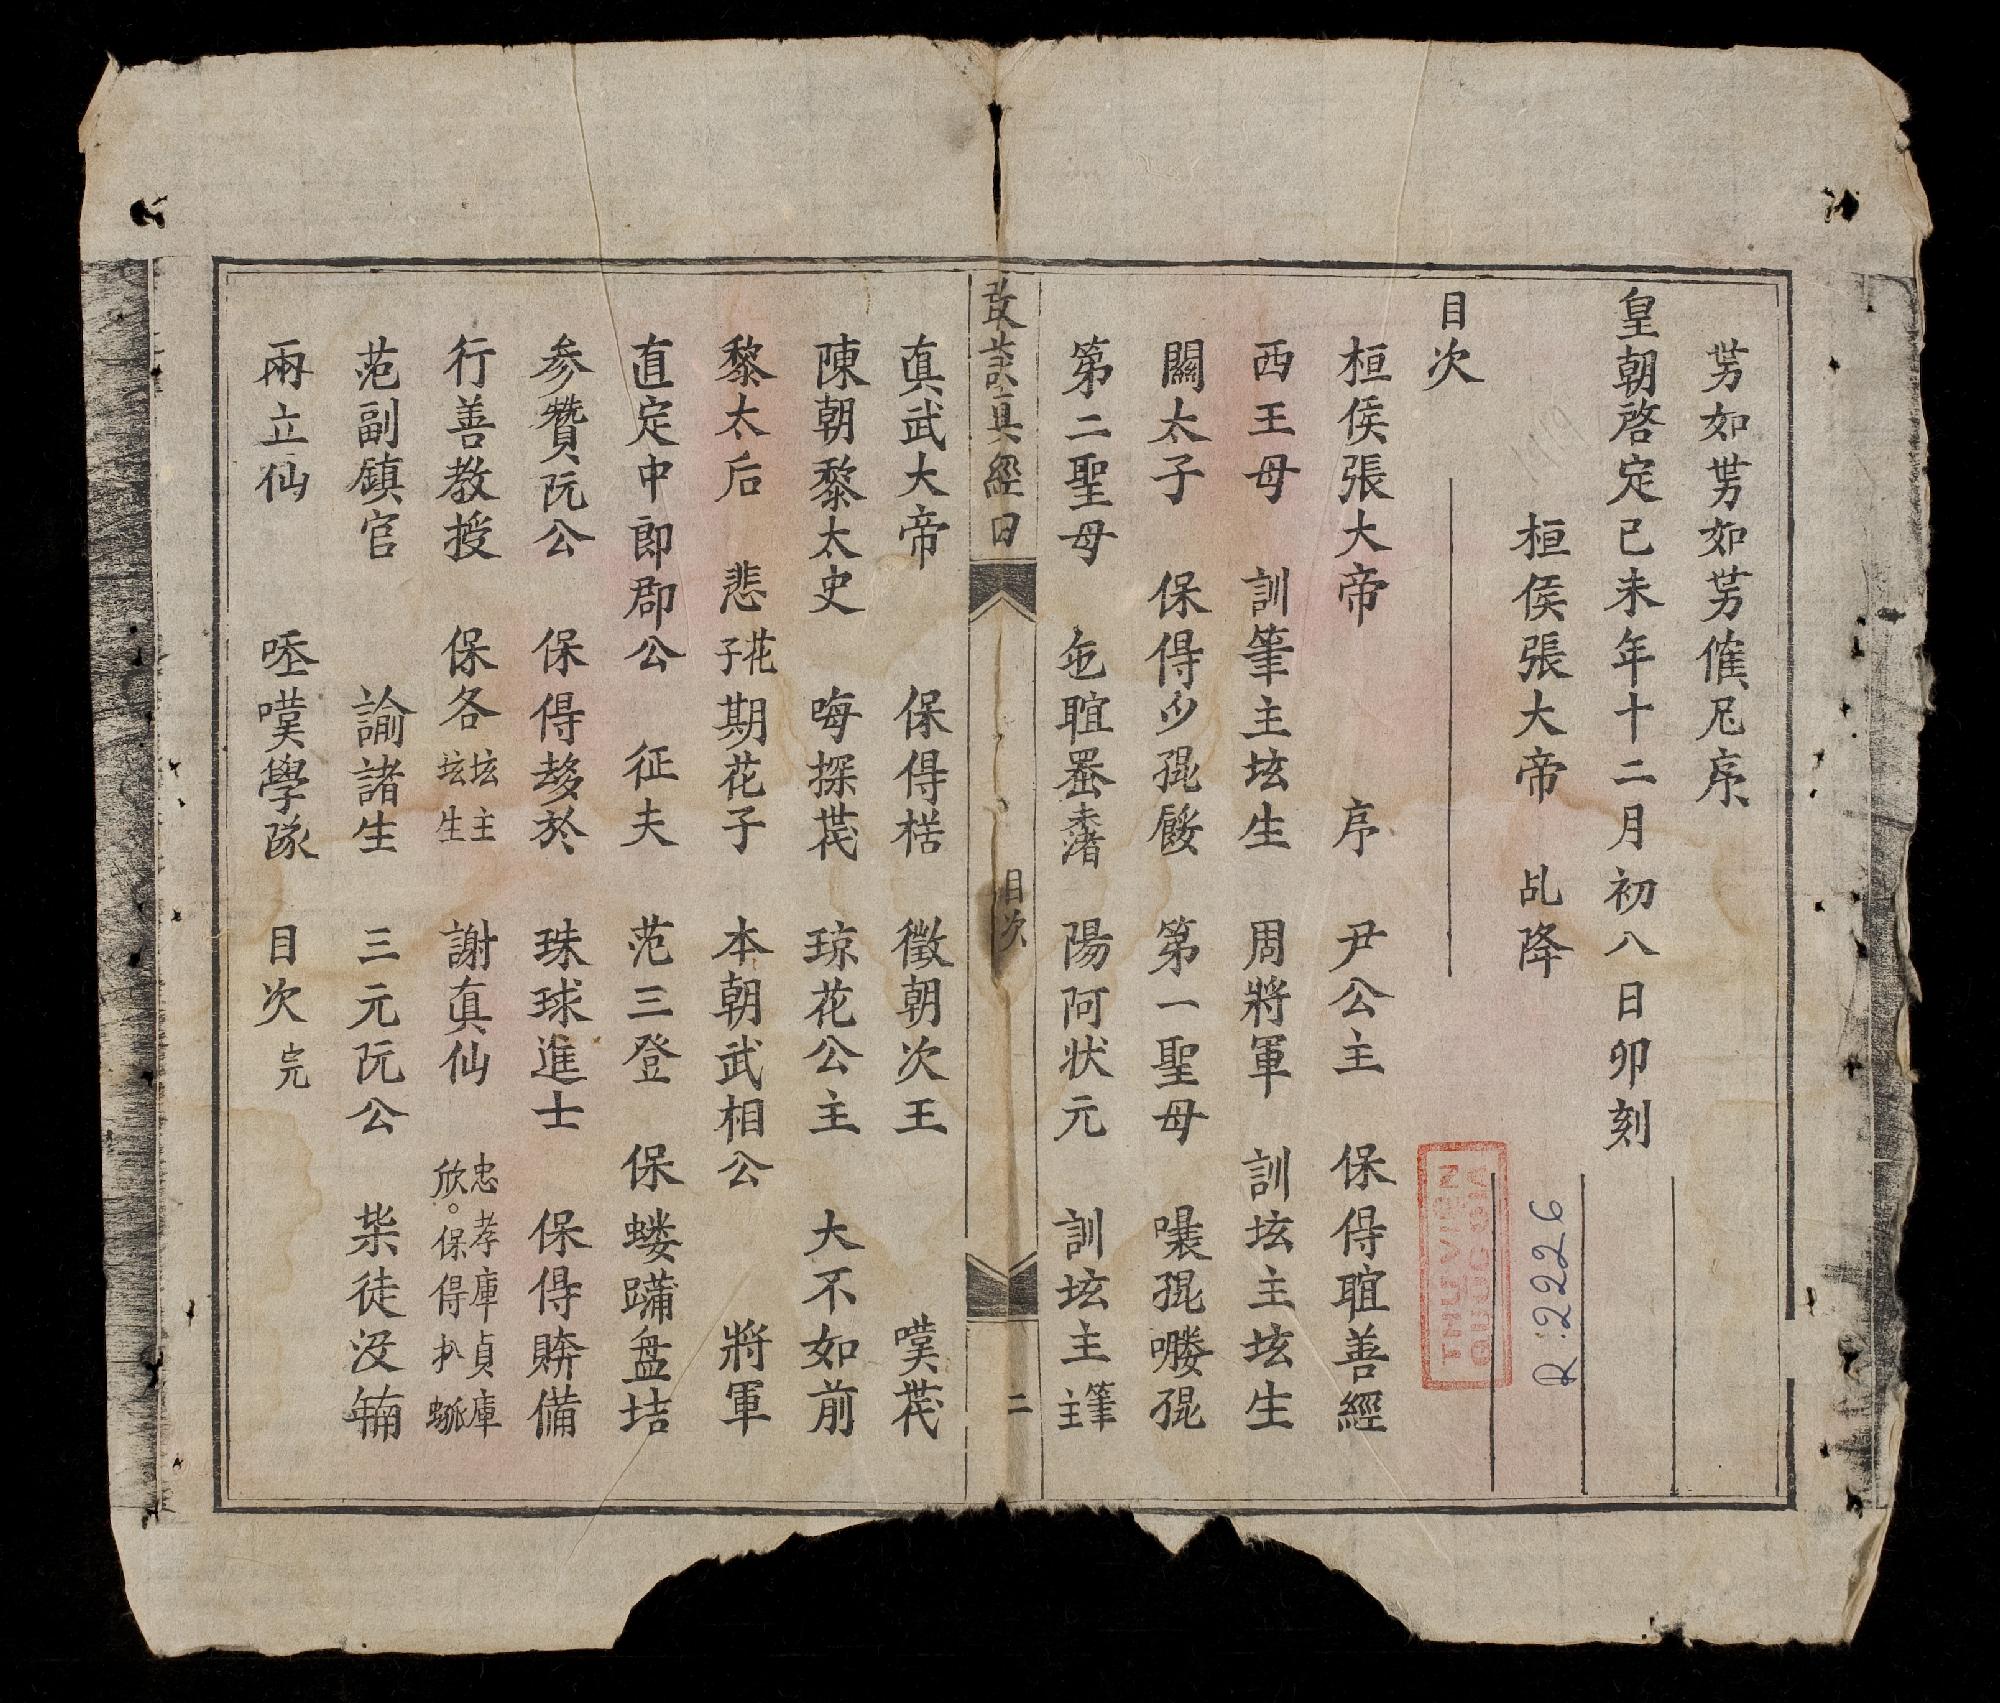 如如催序
皇朝啓定已未年十二月初八日卯刻
桓侯張大帝 乩降
目次
桓侯張大帝 序 尹公主 保得誼善經
西王母 訓筆主坛生 周將軍 訓坛主坛生
關太子 保得少𠎪 第一聖母
第二聖母 陽阿状元 訓坛主主筆
真經日
目次
二
真武大帝 保得楛 徵朝次王 嘆花
陳朝黎太史 晦探花 琼花公主 大不如前
黎太后 悲花子期花子 本朝武相公 將軍
直定中郎郡公 征夫 范三登 保螻蹣盘坫
参贊阮公 保得於 珠球進士 保得備
行善教授 保各坛主坛生 謝真仙 忠孝庫貞庫欣。保得
范副鎮官 諭諸生 三元阮公 柴徒沒
兩立仙 嘆學隊 目次完
THU VIEN
QUOC GIA
R.2226